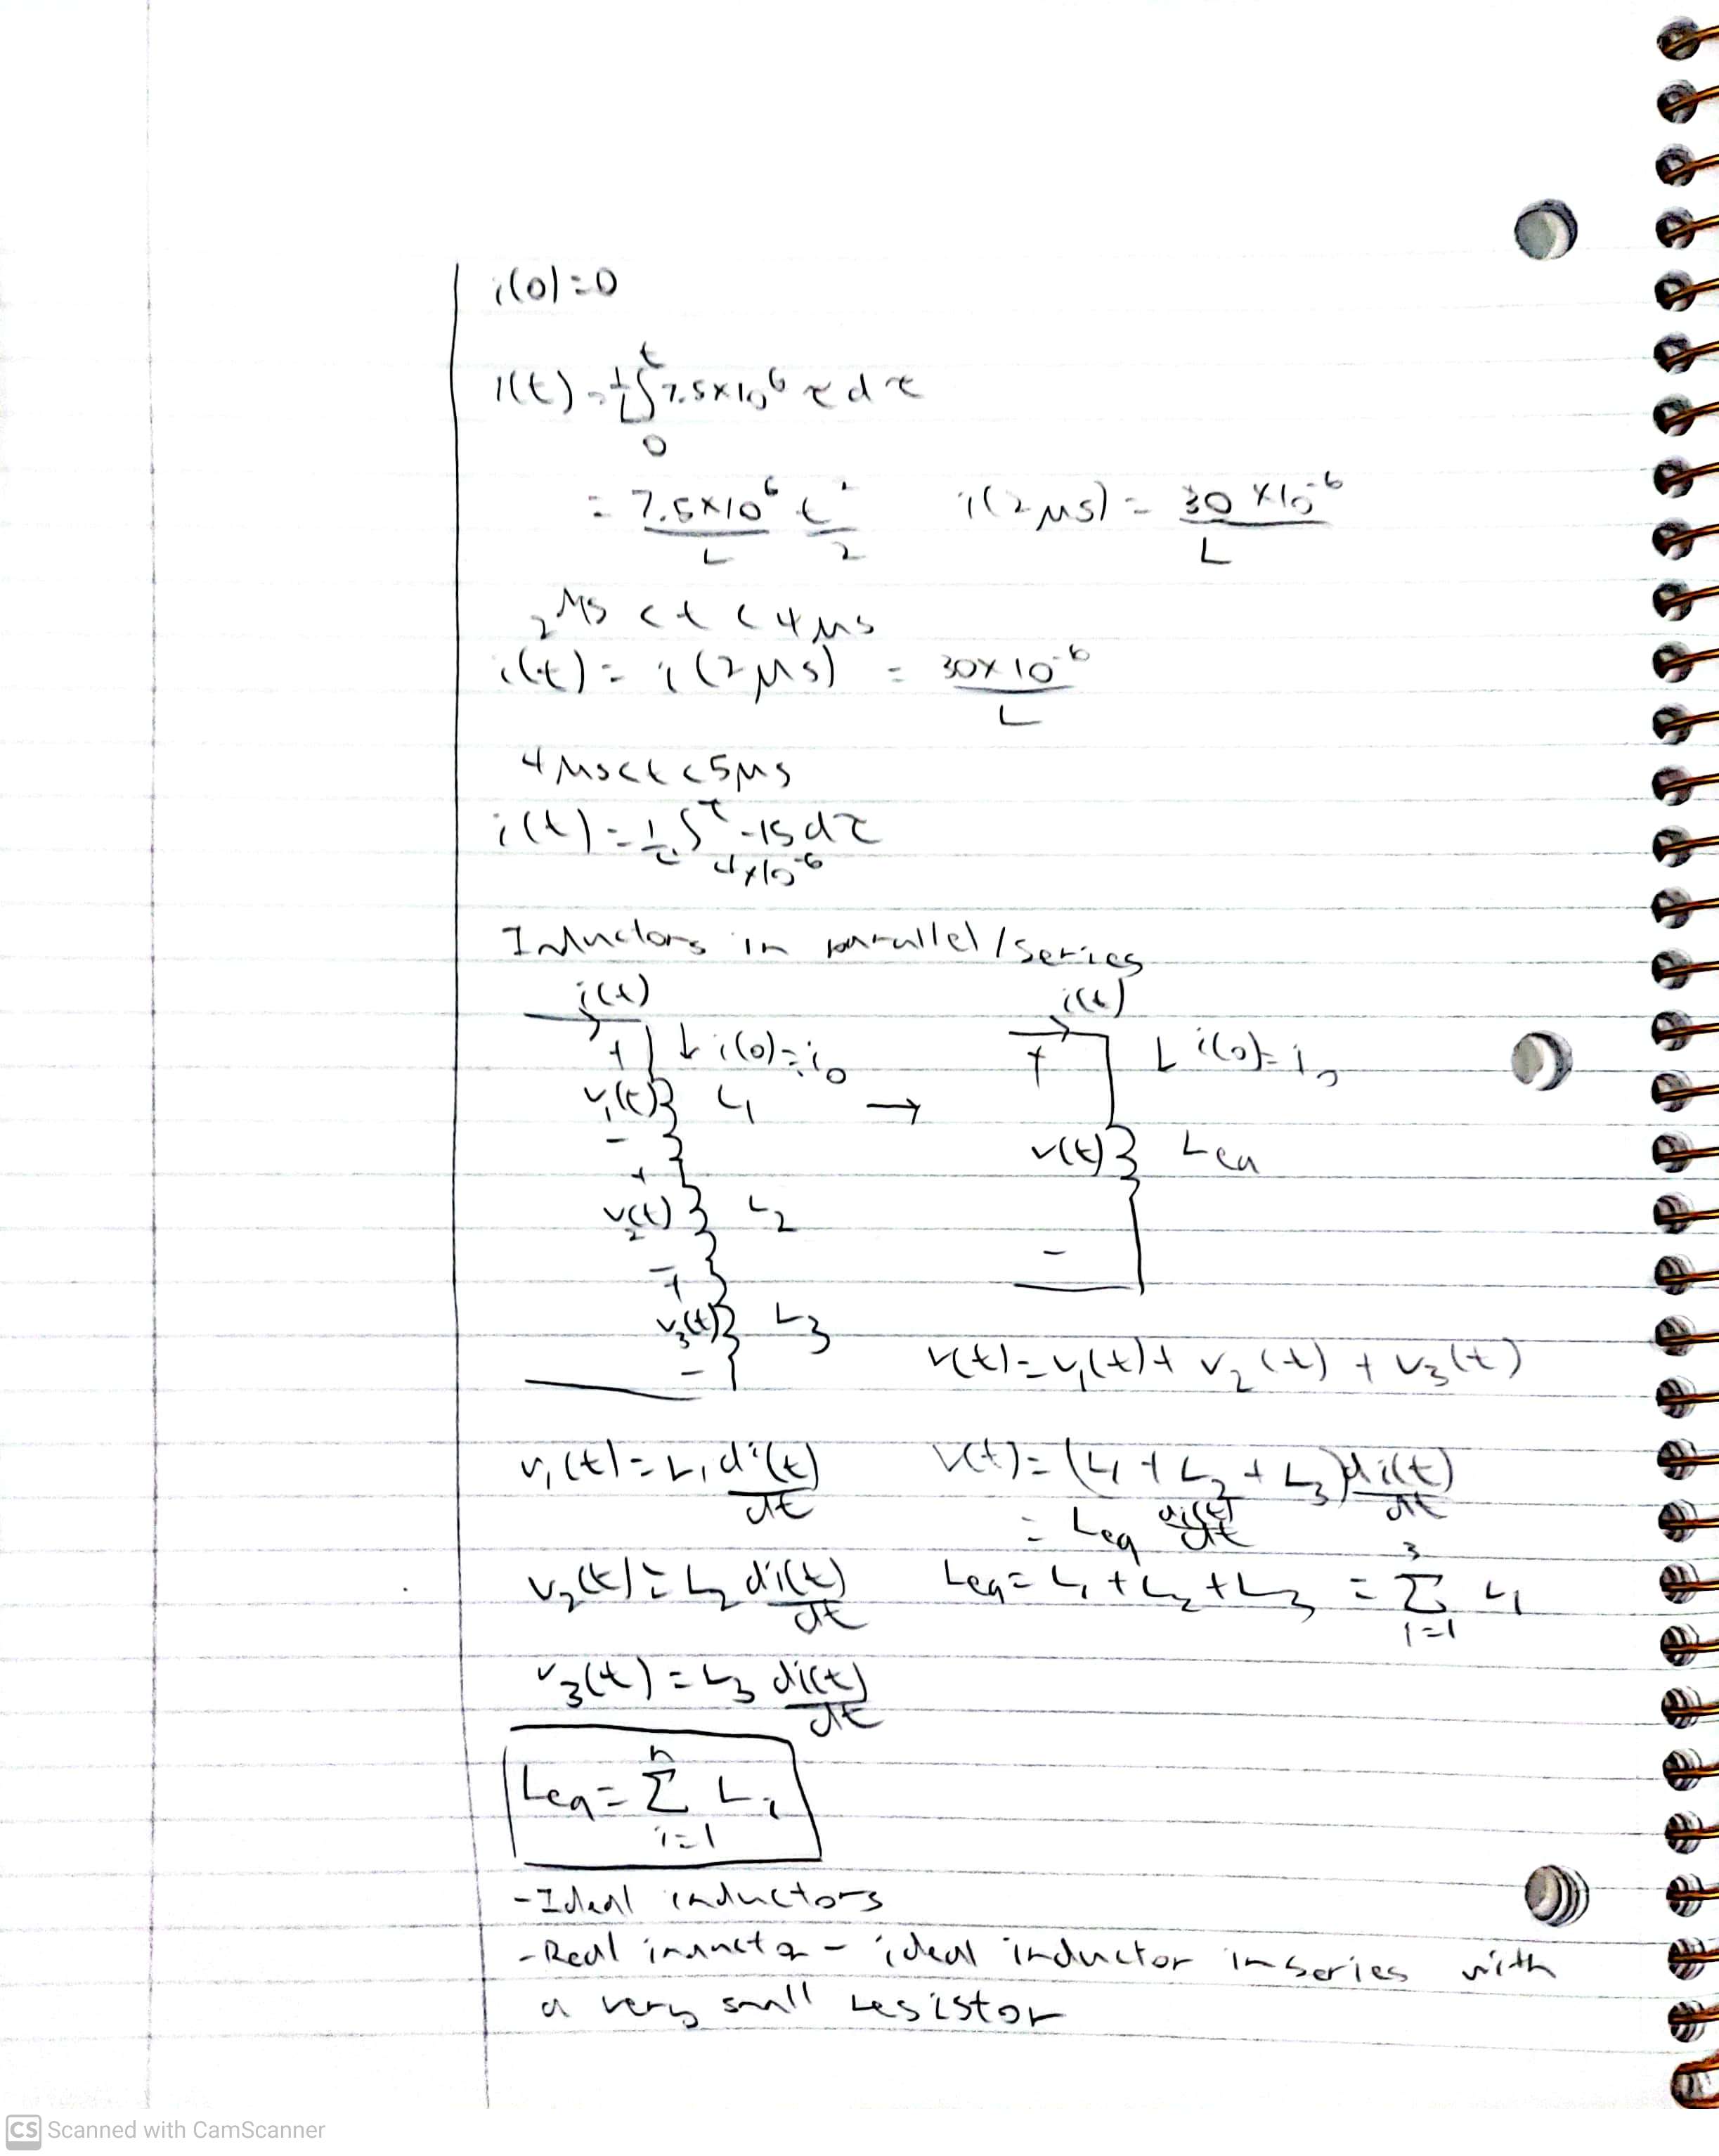 i(0)=0
i(t)=1/L ∫₀ᵗ 7.5×10⁶ τ dτ
= 7.5×10⁶/L t²/2    i(2μs) = 30×10⁻⁶/L
2μs < t < 4μs
i(t) = i(2μs) = 30×10⁻⁶/L
4μs<t<5μs
i(t) = 1/L ∫ᵗ₄ₓ₁₀₋₆ -15dτ
Inductors in parallel/series
i(t)    i(t)
+ ↓ i(0)=i₀    + ↓ i(0)=i₀
v₁(t) L₁ →
-    v(t) Leq
+
v₂(t) L₂
-    -
+
v₃(t) L₃
-    v(t)=v₁(t)+v₂(t)+v₃(t)
v₁(t)=L₁ di(t)/dt    v(t)=(L₁+L₂+L₃) di(t)/dt
= Leq di(t)/dt
v₂(t)=L₂ di(t)/dt    Leq=L₁+L₂+L₃ = Σ³ᵢ₌₁ Lᵢ
v₃(t)=L₃ di(t)/dt
Leq = Σⁿᵢ₌₁ Lᵢ
-Ideal inductors
-Real inductor - ideal inductor in series with
a very small resistor
CS Scanned with CamScanner